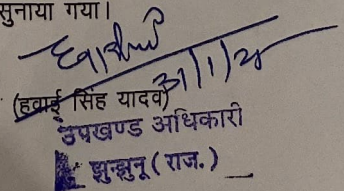 सुनाया गया।
(हवाई सिंह यादव)
उपखण्ड अधिकारी
झुन्झुनू (राज.)